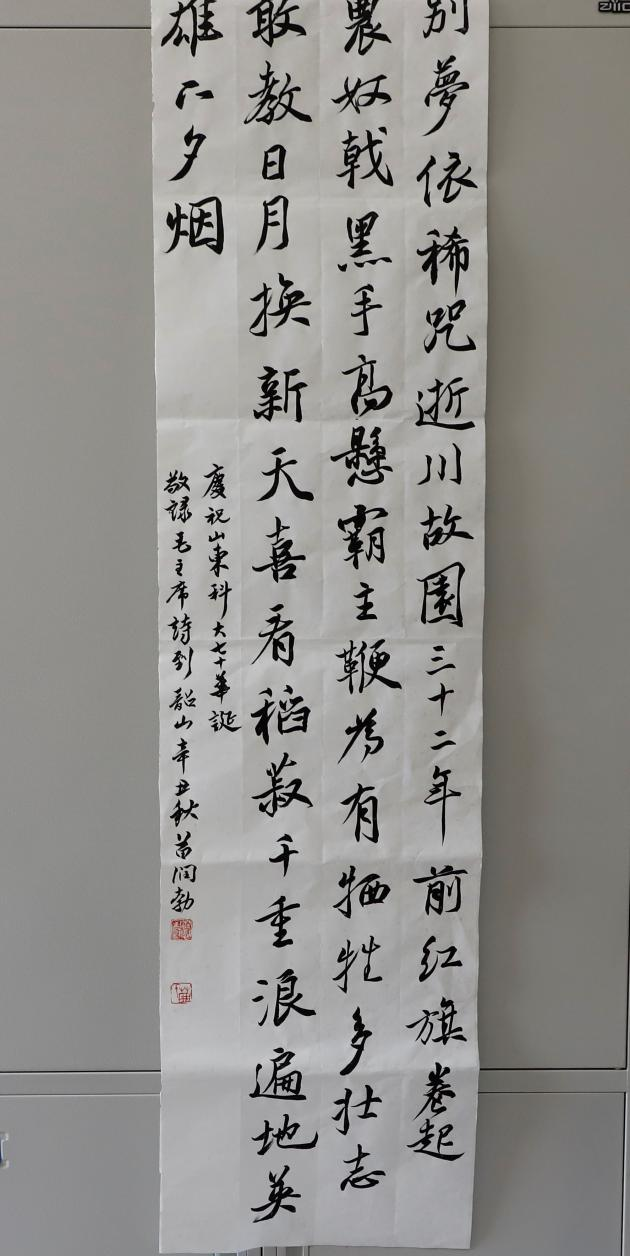 别夢依稀咒逝川故園三十二年前红旗卷起
農奴戟黑手高懸霸主鞭為有牺牲多壮志
敢教日月换新天喜看稻菽千重浪遍地英
雄下夕烟
慶祝山東科大七十華誕
敬録毛主席詩到韶山辛丑秋苗润勃